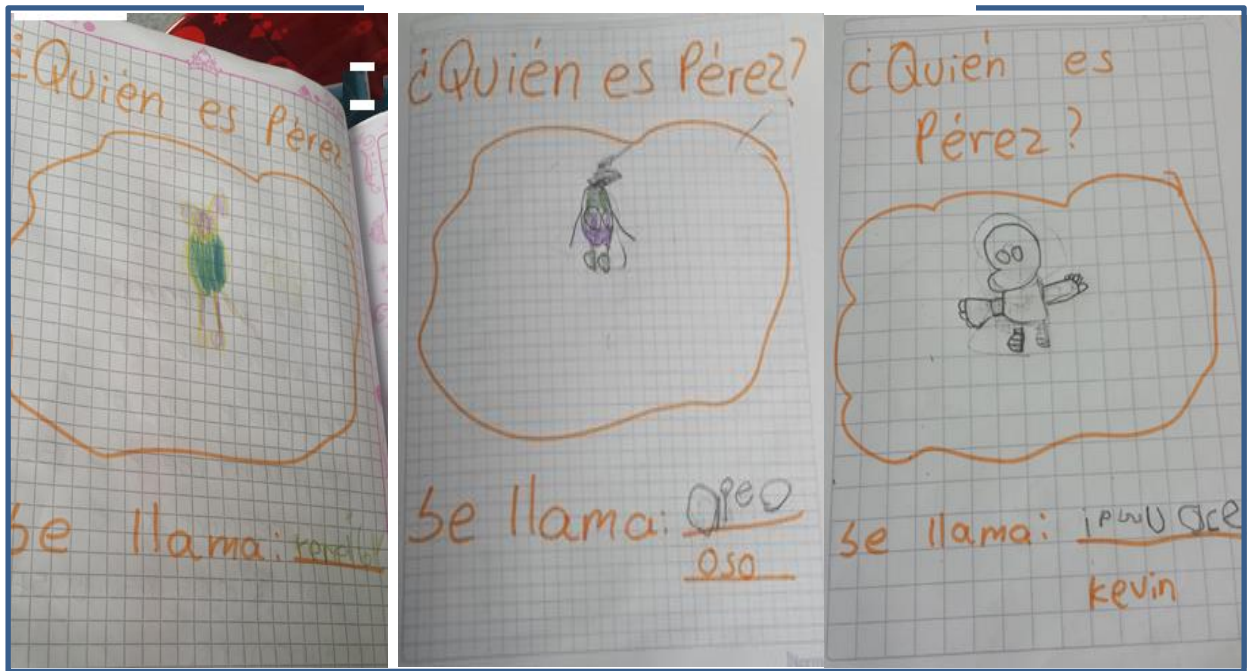 ¿Quién es Pérez
Se llama:
¿Quién es Pérez?
Se llama:
oso
¿Quién es
Pérez?
Se llama:
kevin